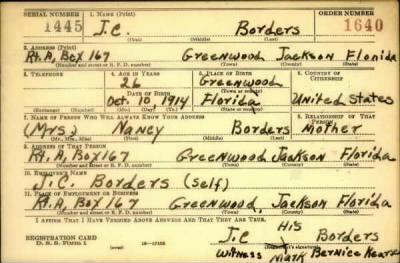 SERIAL NUMBER 1. NAME (Print) ORDER NUMBER
1445 J.C. Borders 1640
(First) (Middle) (Last)
2. ADDRESS (Print)
Rt. A, Box 167 Greenwood Jackson Florida
(Number and street or R. F. D. number) (Town) (County) (State)
3. TELEPHONE 4. AGE IN YEARS 5. PLACE OF BIRTH 6. COUNTRY OF CITIZENSHIP
26 Greenwood
DATE OF BIRTH (Town or county)
Oct. 10, 1914 Florida United States
(Exchange) (Number) (Mo.) (Day) (Yr.) (State or country)
7. NAME OF PERSON WHO WILL ALWAYS KNOW YOUR ADDRESS 8. RELATIONSHIP OF THAT PERSON
(Mrs.) Nancy Borders Mother
(Mr., Mrs., Miss) (First) (Middle) (Last)
9. ADDRESS OF THAT PERSON
Rt. A, Box 167 Greenwood Jackson Florida
(Number and street or R. F. D. number) (Town) (County) (State)
10. EMPLOYER'S NAME
J.C. Borders (self)
11. PLACE OF EMPLOYMENT OR BUSINESS
Rt. A, Box 167 Greenwood, Jackson Florida
(Number and street or R. F. D. number) (Town) (County) (State)
I AFFIRM THAT I HAVE VERIFIED ABOVE ANSWERS AND THAT THEY ARE TRUE.
REGISTRATION CARD J.C His Borders
D. S. S. Form 1 16—17105 (Registrant's signature)
Witness Mark Bernice